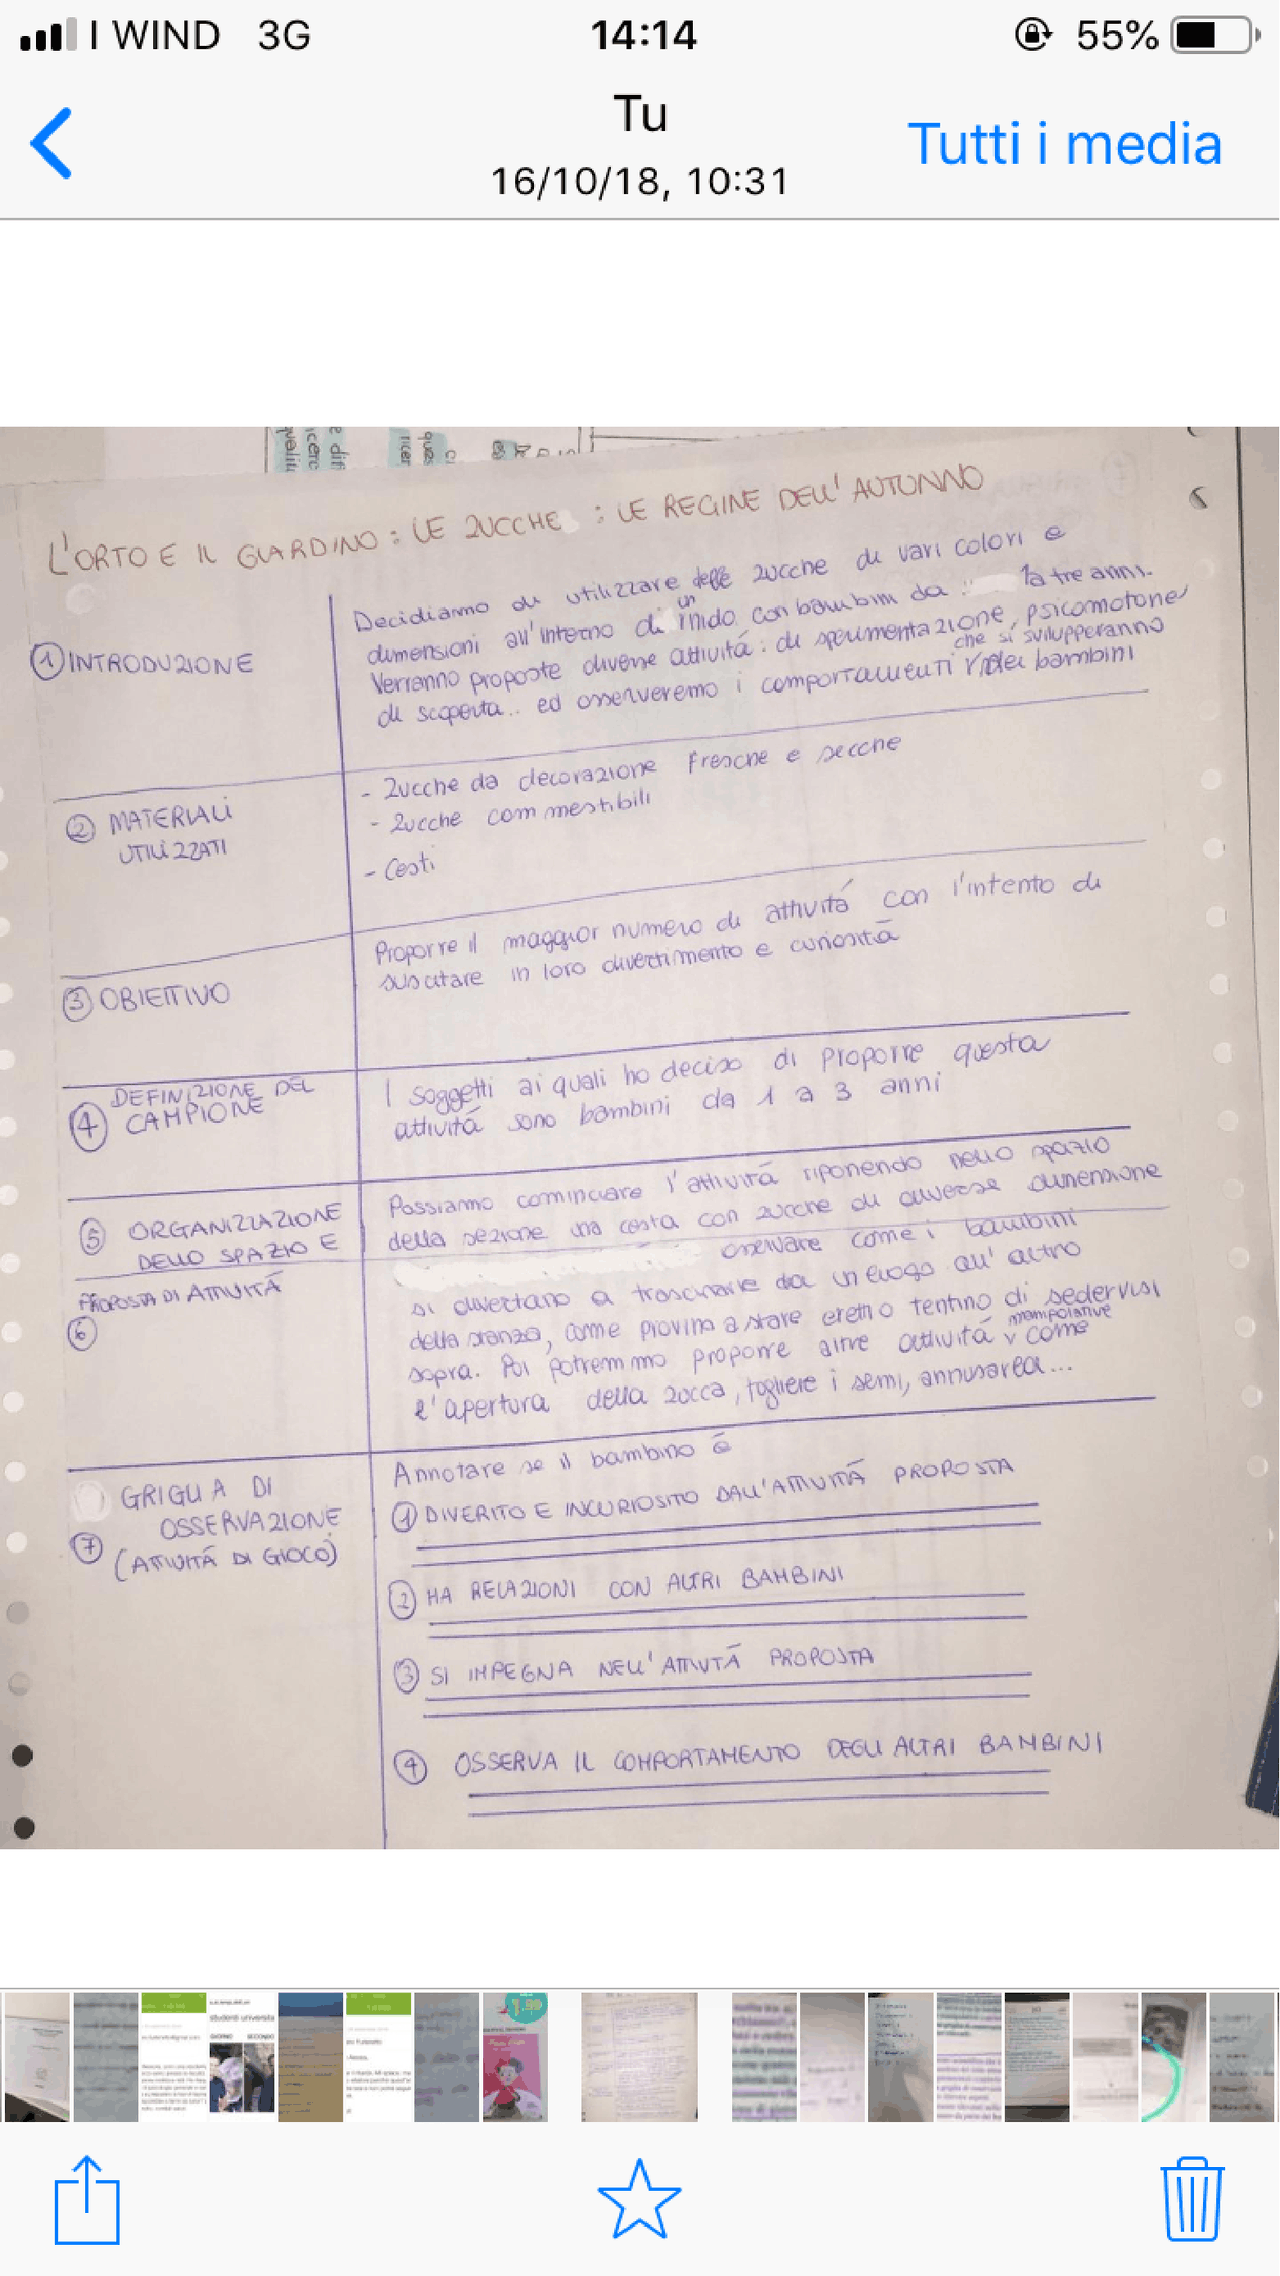 I WIND 3G 14:14 55%
Tu
16/10/18, 10:31
Tutti i media
L'ORTO E IL GIARDINO: LE ZUCCHE : LE REGINE DELL'AUTUNNO
① INTRODUZIONE
Decidiamo di utilizzare delle zucche di vari colori e
dimensioni all'interno di un nido con bambini da 1a tre anni.
Verranno proposte diverse attivitá: di sperimentazione, psicomotone
di scoperta.. ed osserveremo i comportamenti che si svilupperanno nei bambini
② MATERIALI
UTILIZZATI
- Zucche da decorazione fresche e secche
- Zucche commestibili
- Cesti
③ OBIETTIVO
Proporre il maggior numero di attivitá con l'intento di
suscitare in loro divertimento e curiositá
④ DEFINIZIONE DEL
CAMPIONE
I soggetti ai quali ho deciso di proporre questa
attivitá sono bambini da 1 a 3 anni
⑤ ORGANIZZAZIONE
DELLO SPAZIO E
PROPOSTA DI ATTIVITÁ
⑥
Possiamo cominciare l'attivitá riponendo nello spazio
della sezione una cesta con zucche di diverse dimensione
osservare come i bambini
si divertano a trascinarle da un luogo all'altro
della stanza, come provino a stare eretti o tentino di sedervisi
sopra. Poi potremmo proporre altre attivitá manipolative come
l'apertura della zucca, togliere i semi, annusarla...
⑦ GRIGLIA DI
OSSERVAZIONE
(ATTIVITÁ DI GIOCO)
Annotare se il bambino é
① DIVERITO E INCURIOSITO DALL'ATTIVITÁ PROPOSTA
② HA RELAZIONI CON ALTRI BAMBINI
③ SI IMPEGNA NELL'ATTIVTÁ PROPOSTA
④ OSSERVA IL COMPORTAMENTO DEGLI ALTRI BAMBINI